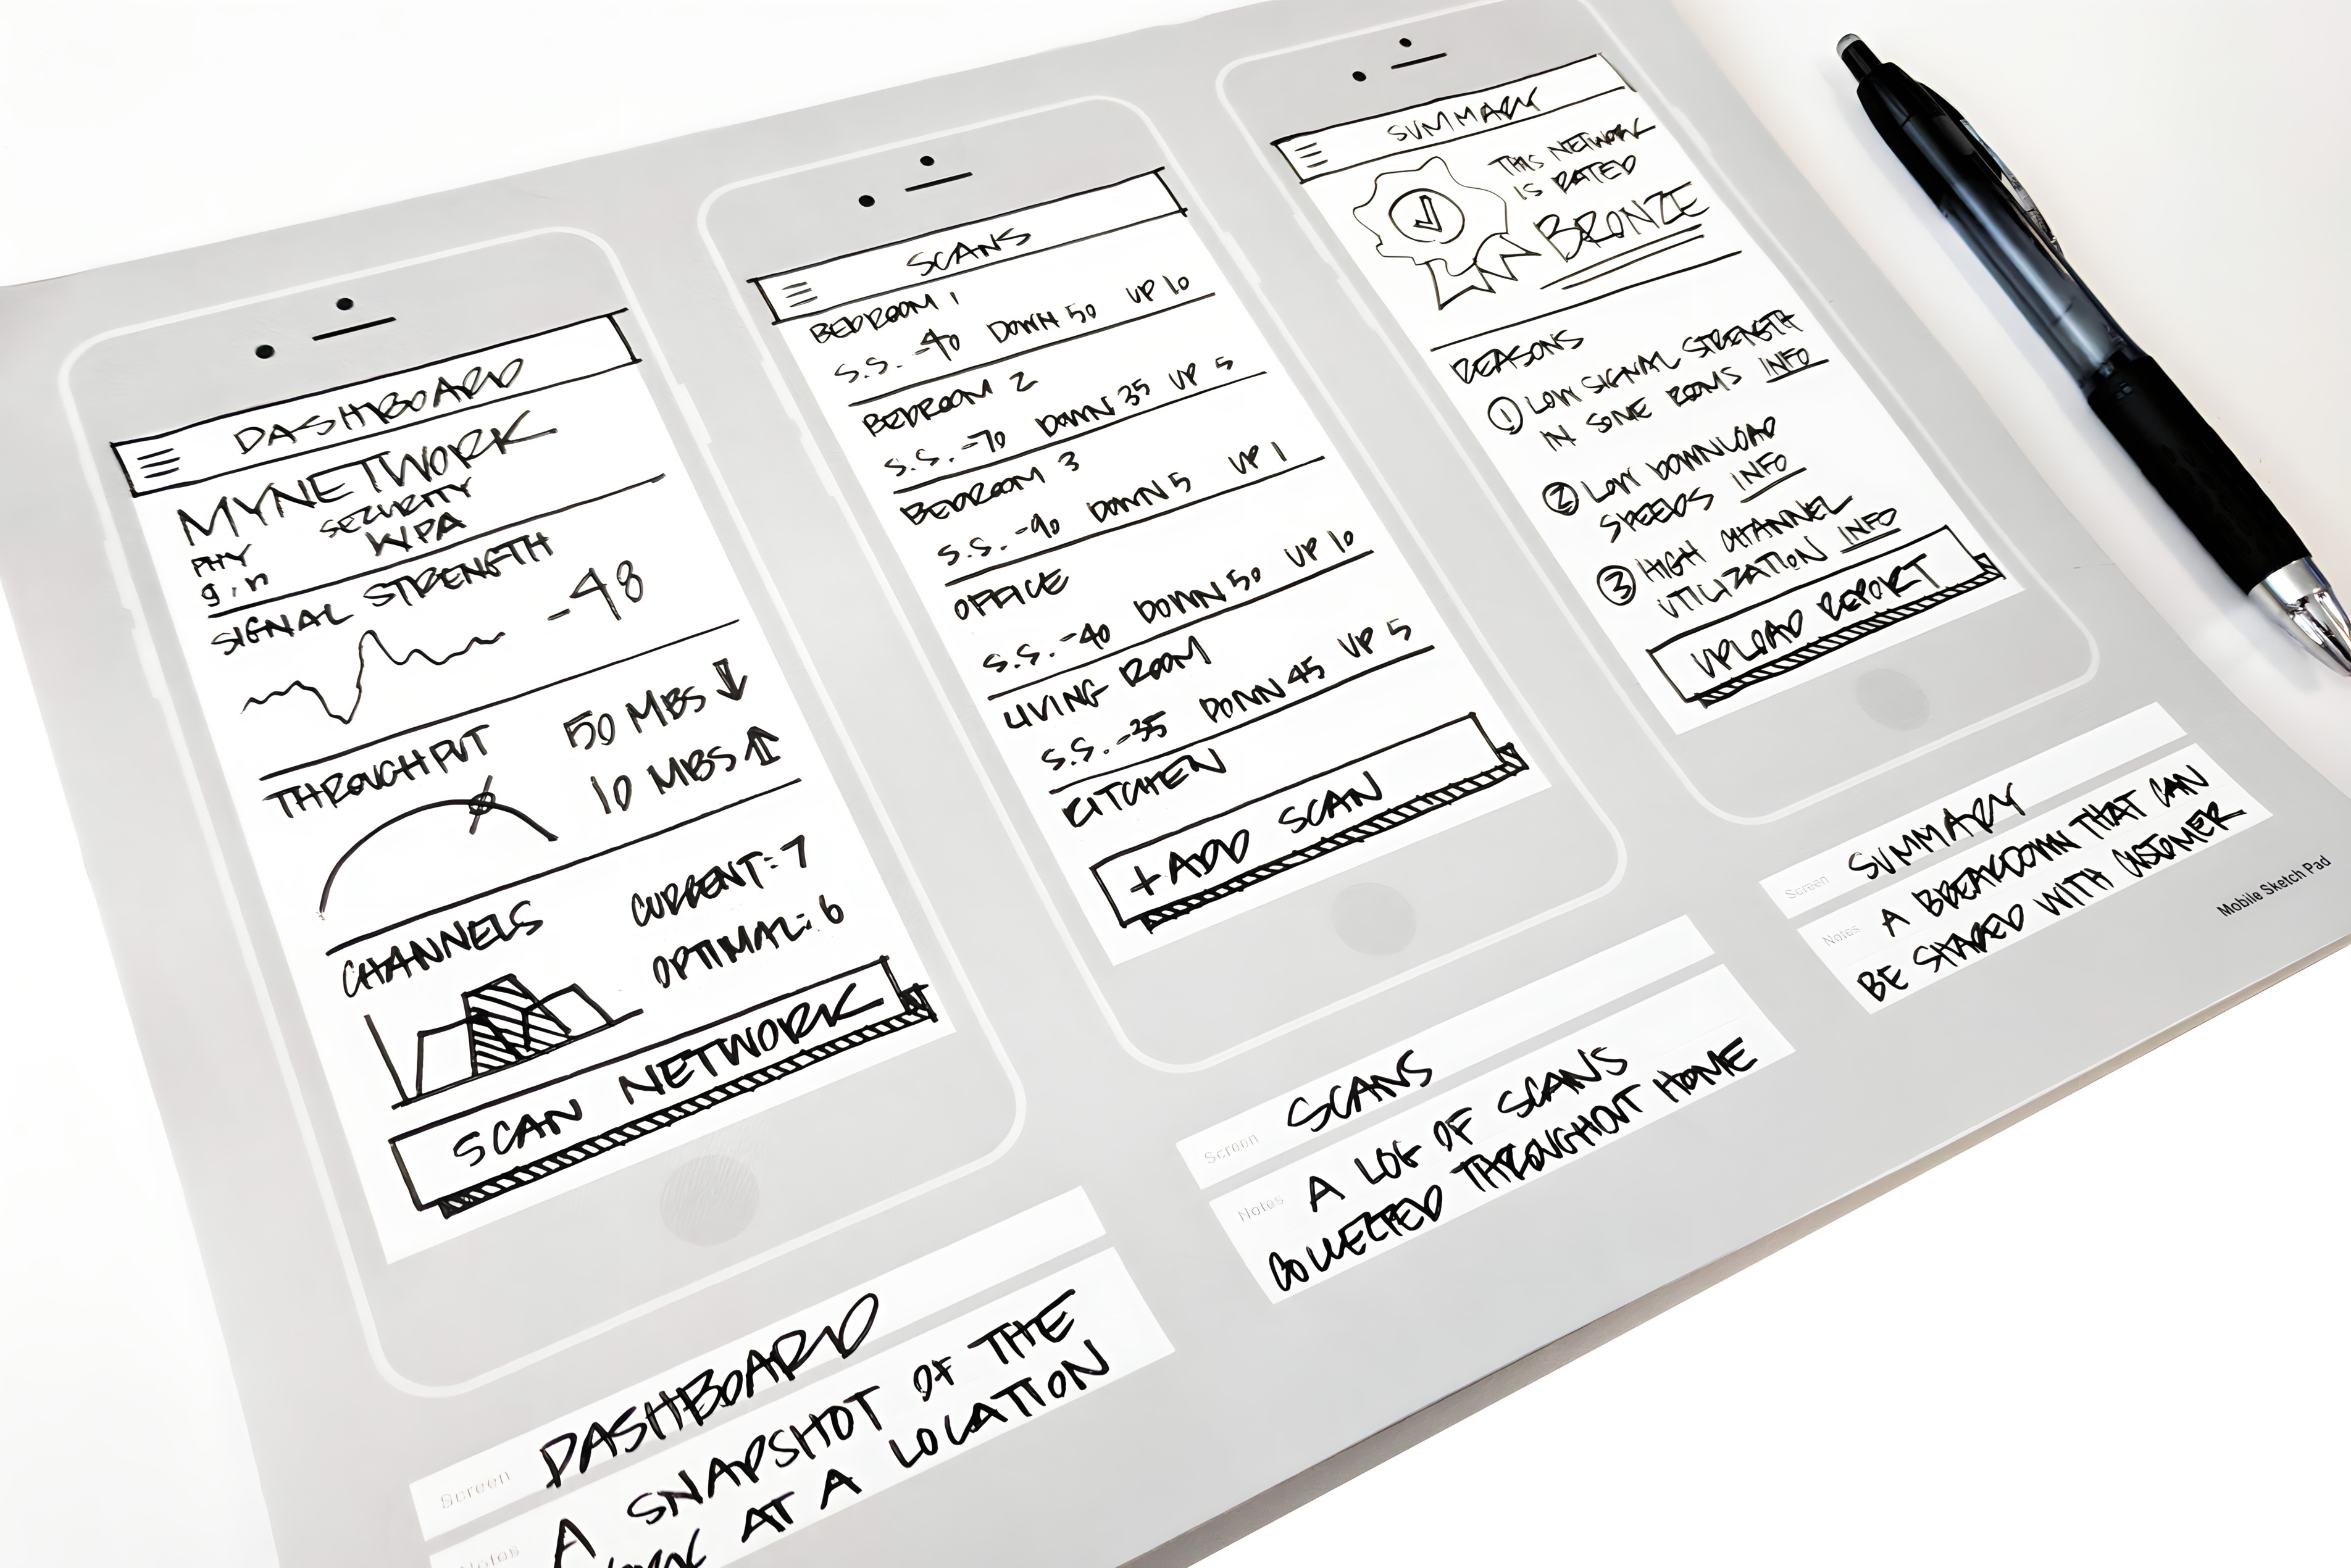 DASHBOARD
MYNETWORK
PHY
g,n
SECURITY
WPA
SIGNAL STRENGTH
-48
THROUGHPUT
50 MBS
10 MBS
CHANNELS
CURRENT: 7
OPTIMAL: 6
SCAN NETWORK
Screen DASHBOARD
Notes A SNAPSHOT OF THE
AT A LOCATION
SCANS
BEDROOM 1
S.S. -40 DOWN 50 UP 10
BEDROOM 2
S.S. -70 DOWN 35 UP 5
BEDROOM 3
S.S. -90 DOWN 5 UP 1
OFFICE
S.S. -40 DOWN 50 UP 10
LIVING ROOM
S.S. -35 DOWN 45 UP 5
KITCHEN
+ADD SCAN
Screen SCANS
Notes A LOG OF SCANS
COLLECTED THROUGHOUT HOME
SUMMARY
THIS NETWORK
IS RATED
BRONZE
REASONS
1 LOW SIGNAL STRENGTH
IN SOME ROOMS INFO
2 LOW DOWNLOAD
SPEEDS INFO
3 HIGH CHANNEL
UTILIZATION INFO
UPLOAD REPORT
Screen SUMMARY
Notes A BREAKDOWN THAT CAN
BE SHARED WITH CUSTOMER
Mobile Sketch Pad